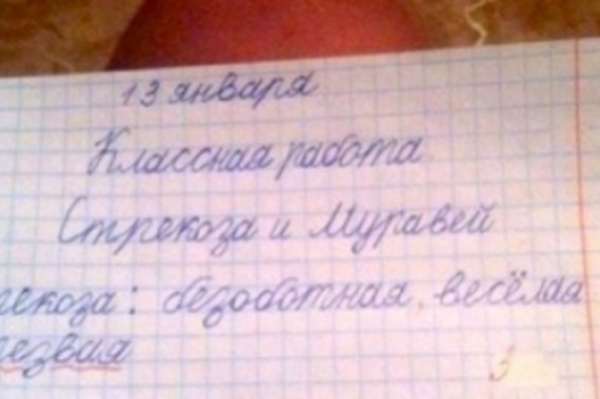 13 января
Классная работа
Стрекоза и Муравей
рекоза: безоботная, весёлая
резвая
3